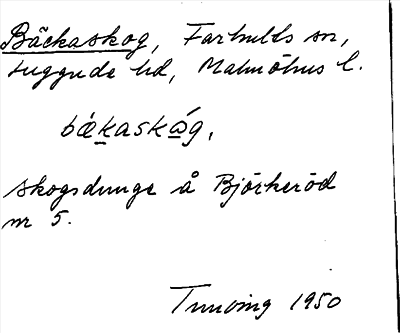 Bäckaskog, Farhults sn,
Luggude hd, Malmöhus l.
bæ̀kaskǿg,
skogsdunge å Björkeröd
nr 5.
1950